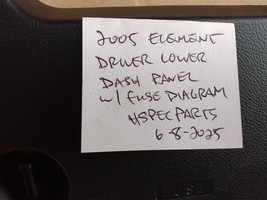 2005 ELEMENT
DRIVER LOWER
DASH PANEL
w/ FUSE DIAGRAM
HSPEC PARTS
6-8-2025
FUSE